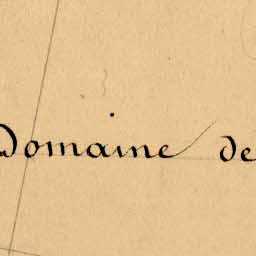 Domaine de